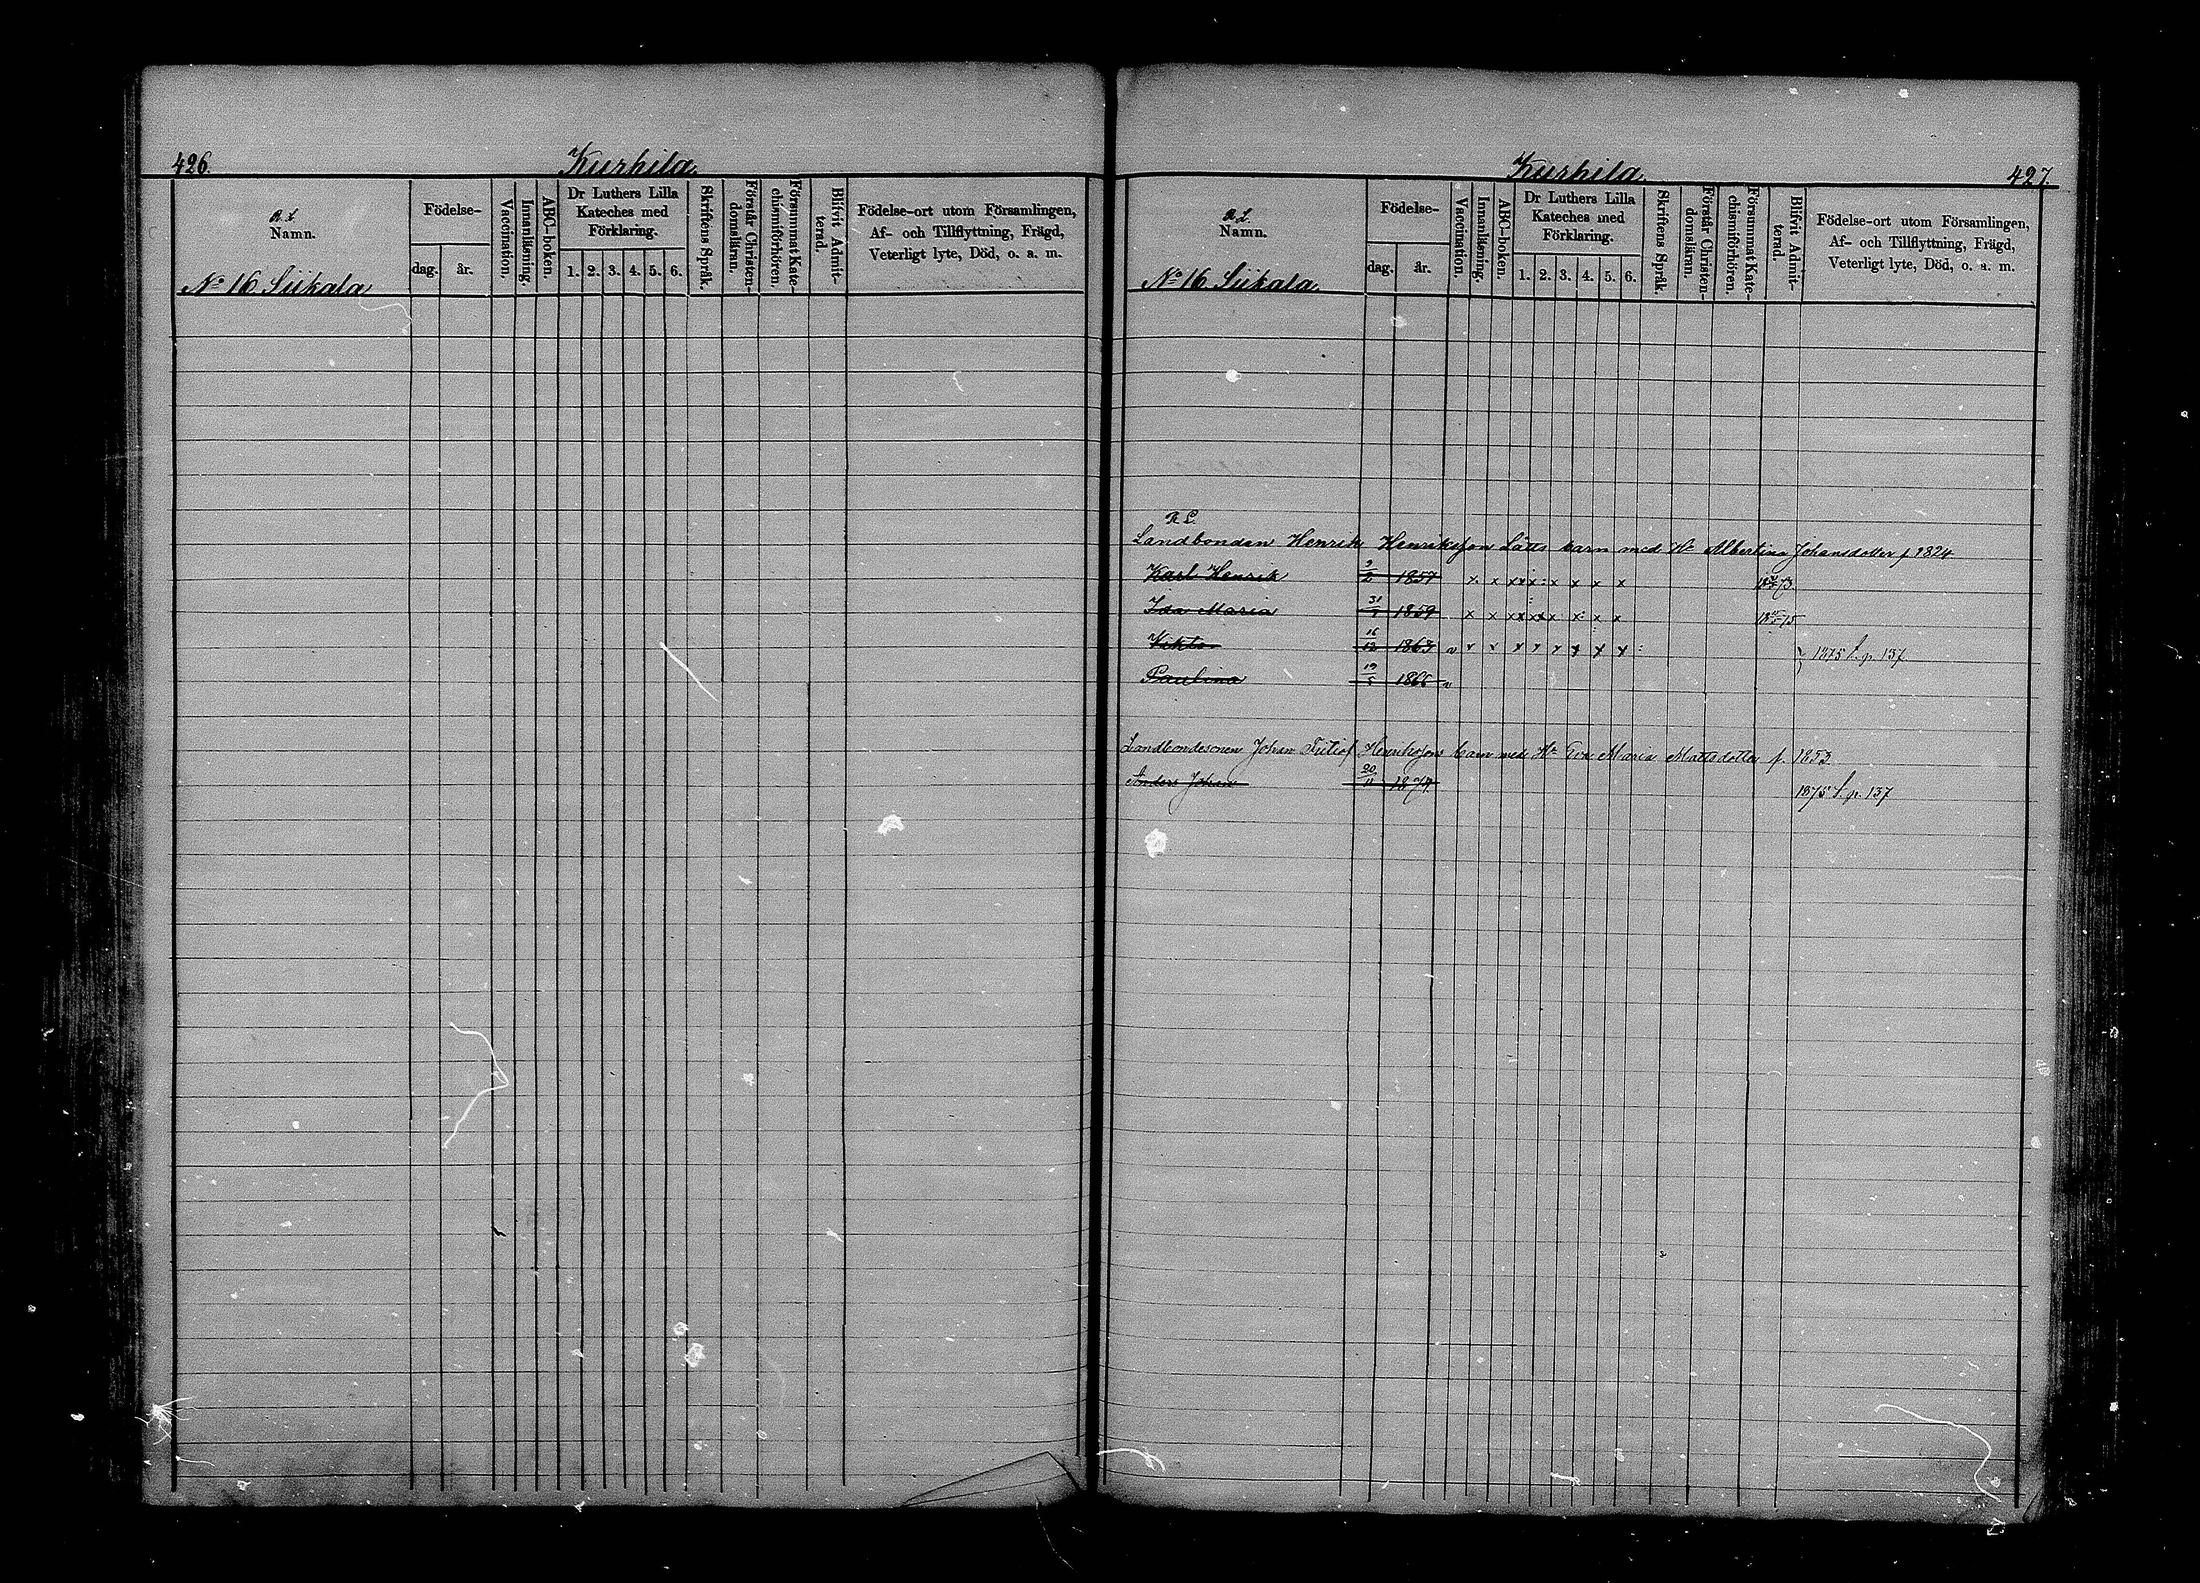 426.
Kurhila
R. L.
Namn.
No 16 Siikala
Födelse-
dag.
år.
Vaccination.
Innanläsning.
ABC-boken.
Dr Luthers Lilla
Kateches med
Förklaring.
1. 2. 3. 4. 5. 6.
Skriftens Språk.
Förstår Christen-
domsläran.
Försummat Kate-
chismiförhören.
Blifvit Admit-
terad.
Födelse-ort utom Församlingen,
Af- och Tillflyttning, Frägd,
Veterligt lyte, Död, o. a. m.
Kurhila
427.
R. L.
Namn.
No 16 Siikala
Födelse-
dag.
år.
Vaccination.
Innanläsning.
ABC-boken.
Dr Luthers Lilla
Kateches med
Förklaring.
1. 2. 3. 4. 5. 6.
Skriftens Språk.
Förstår Christen-
domsläran.
Försummat Kate-
chismiförhören.
Blifvit Admit-
terad.
Födelse-ort utom Församlingen,
Af- och Tillflyttning, Frägd,
Veterligt lyte, Död, o. a. m.
R. L.
Landbonden Henrik Henriksson Lätts barn med Hu Albertina Johansdotter f. 1824
Karl Henrik 1857 x x x x x x x x 73
Ida Maria 31 1859 x x x x x x x x 75
Viktor 16/12 1863 v x x x x x x x x
1875 f. p. 137
Paulina 19/5 1866 v
Landbondesonens Johan Henrikssons barn med Hu Eva Maria Mattsdotter f. 1853
Anders Johan 20/11 1874
1875 f. p. 137